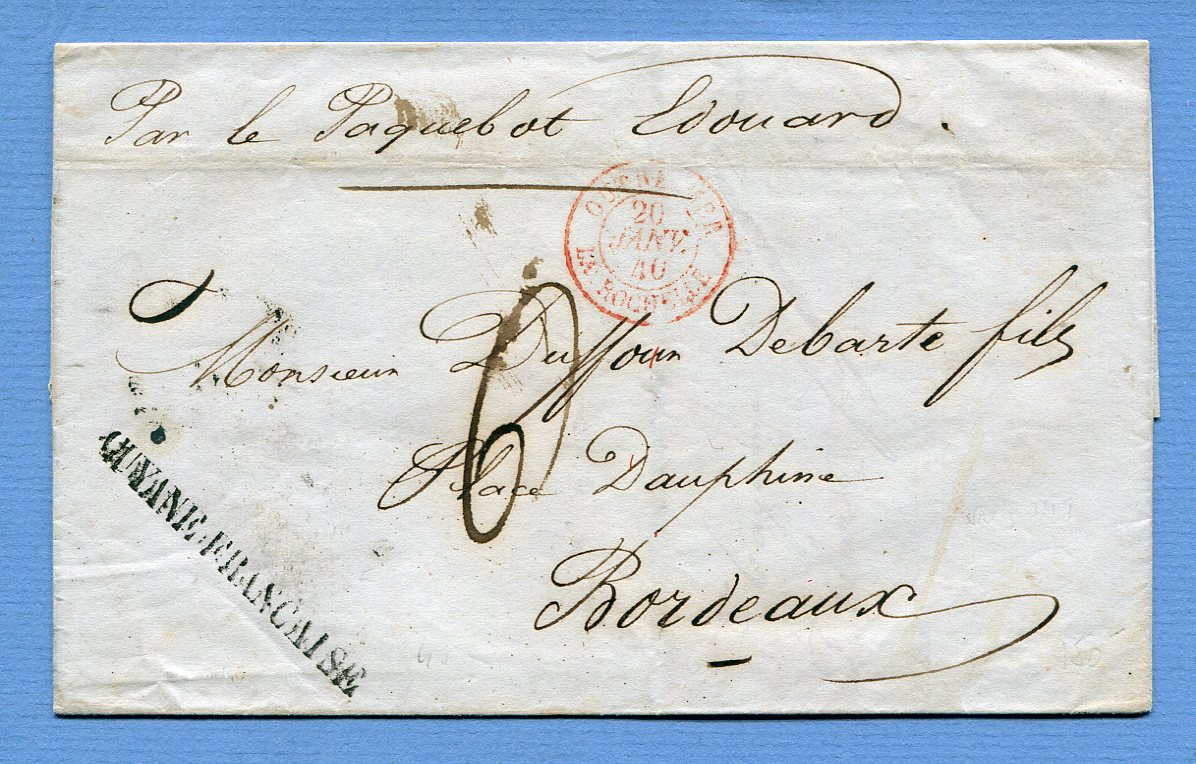 Par le Paquebot Edouard.
OUTRE MER
20
JANV.
40
LA ROCHELLE
Monsieur Duffour Debarte fils
6
Place Dauphine
Bordeaux
GUYANE.FRANCAISE